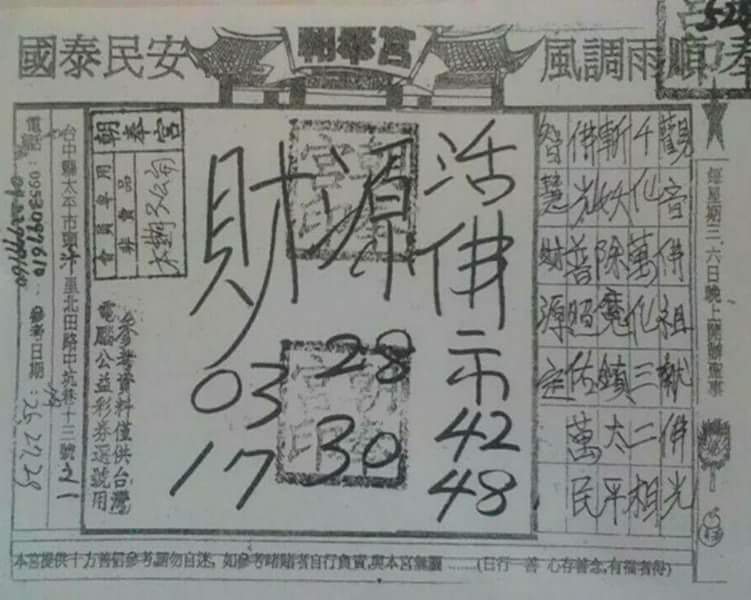 國泰民安
朝奉宮
風調雨順
觀音佛祖獻佛光
千化萬化三二相
斬妖除魔鎮太平
佛光普照佑萬民
智慧財源定
每星期三.六日晚上開辦聖事
活佛示
財源
03 28 42
17 30 48
朝奉宮
會員專用
非賣品
參考資料僅供台灣
電腦公益彩券選號用
台中縣太平市頭汴里北田路中坑巷十三號之一
電話:0953097610
參考日期:26,27,28
本宮提供十方善信參考,請勿自迷,如參考賭賭者自行負責,與本宮無關……(日行一善 心存善念,有福者得)